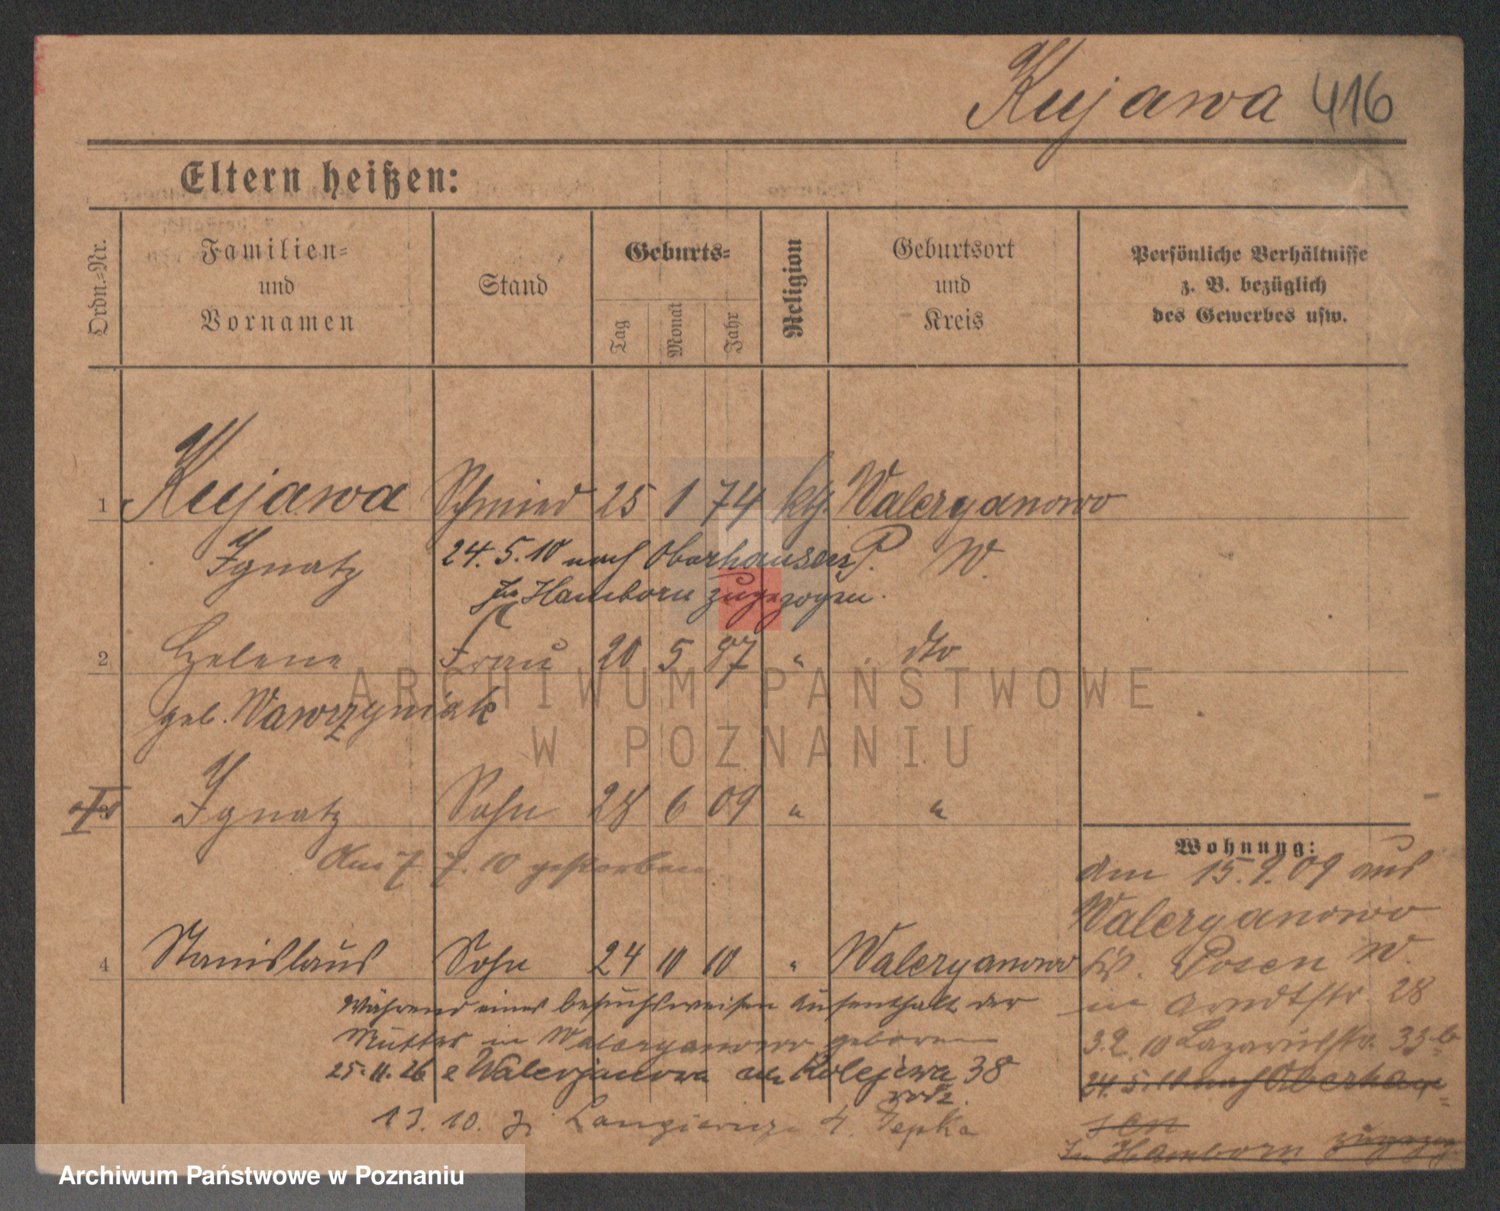 Kujawa 416
Eltern heißen:
Ordn.=Nr.
Familien=
und
Vornamen
Stand
Geburts=
Tag
Monat
Jahr
Religion
Geburtsort
und
Kreis
Persönliche Verhältnisse
z. B. bezüglich
des Gewerbes usw.
1 Kujawa Schmied 25 1 74 kth. Waleryanowo
Ignatz 24.5.10 nach Oberhausen P. W.
In Hamborn zugezogen.
2 Helene Frau 20 5 87 " dto
geb. Wawrzyniak
Ignatz Sohn 28 6 09 " "
Am 7. 7. 10 gestorben.
4 Stanislaus Sohn 24 10 10 " Waleryanowo
Während eines besuchsweisen Aufenthalt der
Mutter in Waleryanowo geboren
25.11.26 z Walerjanowa ul. Kolejowa 38
rodz.
13.10. Langiewicza 4. Depka
Wohnung:
den 15.9.09 aus
Waleryanowo
Posen W.
in Arndtstr. 28
3.2.10 Lazarusstr. 33b
24.5.10 nach Oberhau=
sen
In Hamborn zugezog
ARCHIWUM PAŃSTWOWE
W POZNANIU
Archiwum Państwowe w Poznaniu